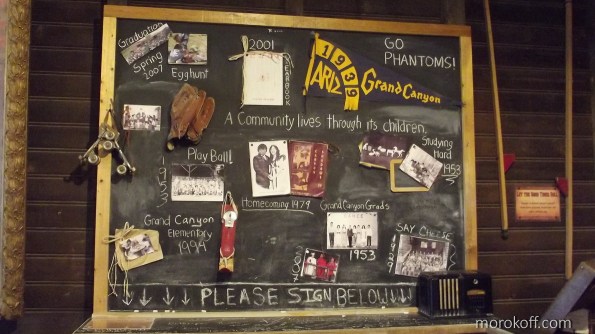 Graduation
Spring
2007
Egghunt
2001
YEARBOOK
1939
ARIZ
Grand Canyon
GO
PHANTOMS!
A Community lives through its children.
1953
Play Ball!
Studying
Hard
1953
Homecoming 1979
Grand Canyon Grads
1953
Grand Canyon
Elementary
1994
2007
SAY CHEESE
1929
PLEASE SIGN BELOW
morokoff.com